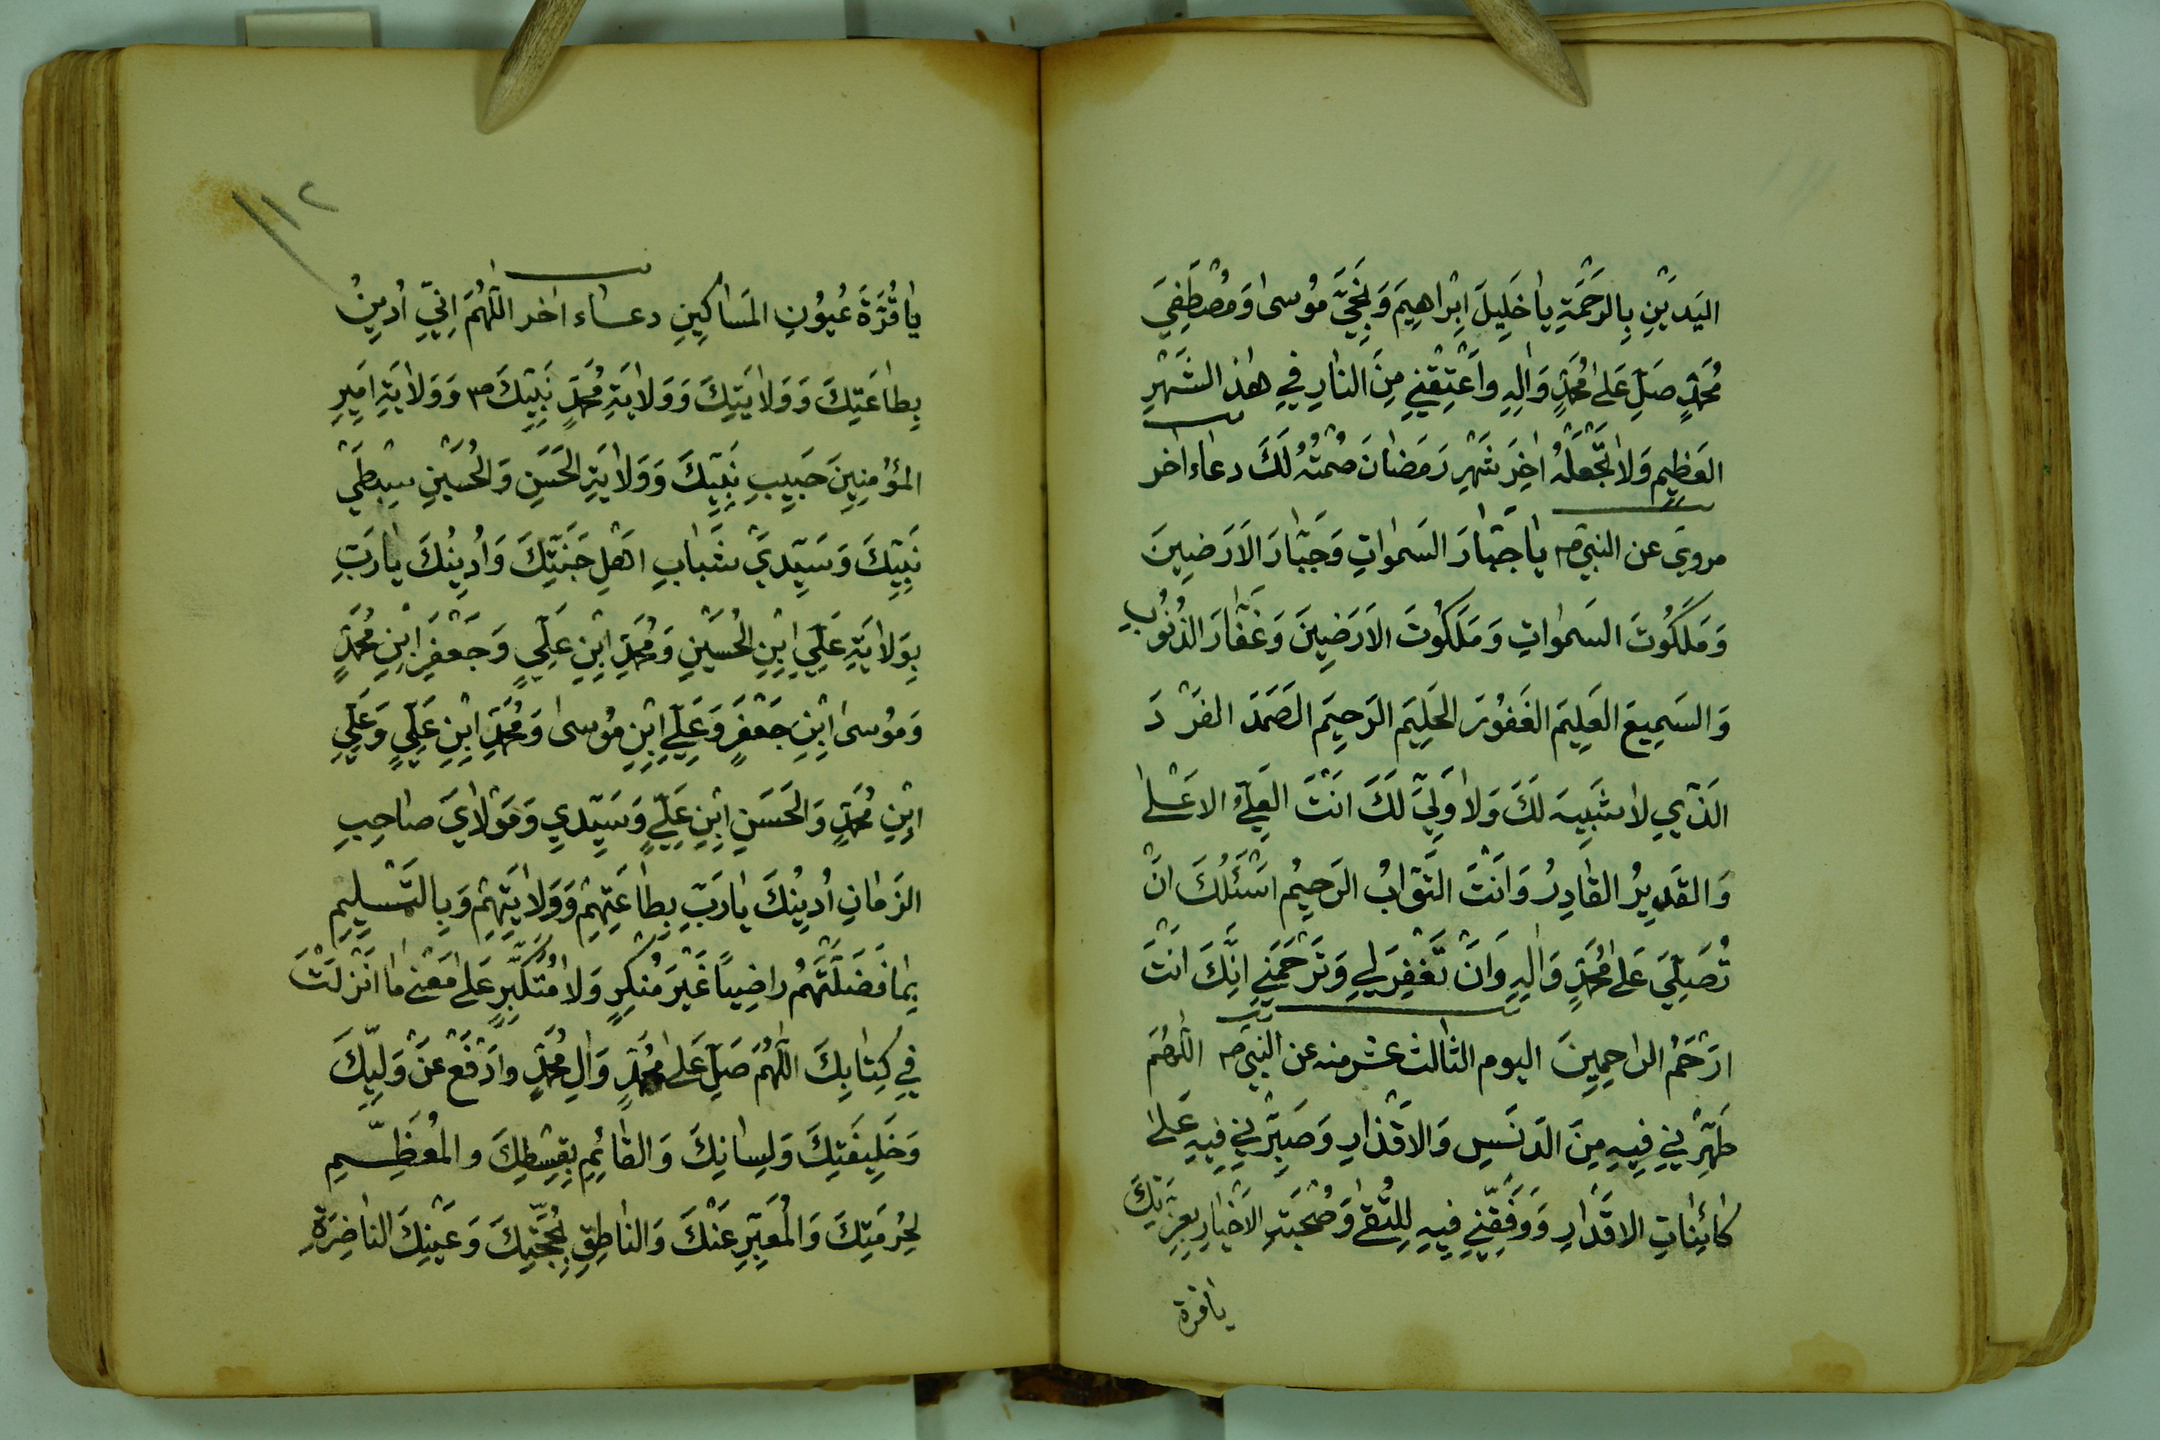 اليَدَيْنِ بِالرَحْمَةِ يا خَلِيلَ اِبْراهِيمَ وَنَجِيَّ مُوسىٰ وَمُصْطَفِيَ
مُحَمَّدٍ صَلِّ عَلىٰ مُحَمَّدٍ وَالِهِ واَعْتِقْنِي مِنَ النارِ فِي هذا الشَهْرِ
العَظِيمِ وَلا تَجْعَلْهُ اخِرَ شَهْرِ رَمَضانَ صُمْتُهُ لَكَ دعاء اخر
مروي عن النبي ص يا جَبّارَ السَمواتِ وَجَبّارَ الاَرَضِينَ
وَمَلَكُوتَ السَمواتِ وَمَلَكُوتَ الاَرَضِينَ وَغَفّارَ الذُنُوبِ
وَالسَمِيعَ العَلِيمَ الغَفُورَ الحَلِيمَ الرَحِيمَ الصَمَدَ الفَرْدَ
الَذِّي لا شَبِيهَ لَكَ وَلا وَلِيَّ لَكَ اَنْتَ العَلِيُّ الاَعْلىٰ
وَالقَدِيرُ القادِرُ وَاَنْتَ التَوّابُ الرَحِيمُ اَسْئَلُكَ اَنْ
تُصَلِّيَ عَلىٰ مُحَمَّدٍ وَالِهِ وَاَنْ تَغْفِرَ لِي وَتَرْحَمَنِي اِنَّكَ اَنْتَ
اَرْحَمُ الراحِمِينَ اليوم الثالث عشر منه عن النبي ص اللّهُمَّ
طَهِّرْنِي فِيهِ مِنَ الدَنَسِ وَالاَقْذارِ وَصَبِّرْنِي فِيهِ عَلىٰ
كائِناتِ الاَقْدارِ وَوَفِّقْنِي فِيهِ لِلتُقىٰ وَصُحْبَةِ الاَخْيارِ بِعِزَّتِكَ
يا قرة
١١٢
يا قُرَّةَ عُيُونِ المَساكِينِ دعاء اخر اللّهُمَّ اِنِّي اُدِينُ
بِطاعَتِكَ وَوَلايَتِكَ وَوَلايَةِ مُحَمَّدٍ نَبِيِّكَ ص وَوَلايَةِ اَمِيرِ
المُؤْمِنِينَ حَبِيبِ نَبِيِّكَ وَوَلايَةِ الحَسَنِ وَالحُسَيْنِ سِبْطَيْ
نَبِيِّكَ وَسَيِّدَيْ شَبابِ اَهْلِ جَنَّتِكَ وَاُدِينُكَ يا رَبِّ
بِوَلايَةِ عَلِيِّ ابْنِ الحُسَيْنِ وَمُحَمَّدِ ابْنِ عَلِيٍّ وَجَعْفَرِ ابْنِ مُحَمَّدٍ
وَمُوسىٰ ابْنِ جَعْفَرٍ وَعَلِيِّ ابْنِ مُوسىٰ وَمُحَمَّدِ ابْنِ عَلِيٍّ وَعَلِيِّ
ابْنِ مُحَمَّدٍ وَالحَسَنِ ابْنِ عَلِيٍّ وَسَيِّدِي وَمَوْلايَ صاحِبِ
الزَمانِ اُدِينُكَ يا رَبِّ بِطاعَتِهِمْ وَوَلايَتِهِمْ وَبِالتَسْلِيمِ
بِما فَضَّلْتَهُمْ راضِياً غَيْرَ مُنْكِرٍ وَلا مُتَكَبِّرٍ عَلىٰ مَعْنىٰ ما اَنْزَلْتَ
فِي كِتابِكَ اللّهُمَّ صَلِّ عَلىٰ مُحَمَّدٍ وَالِ مُحَمَّدٍ وادْفَعْ عَنْ وَلِيِّكَ
وَخَلِيفَتِكَ وَلِسانِكَ وَالقائِمِ بِقِسْطِكَ والمُعَظِّمِ
لِحُرْمَتِكَ وَالمُعَبِّرِ عَنْكَ وَالناطِقِ بِحُجَّتِكَ وَعَيْنِكَ الناضِرَةِ